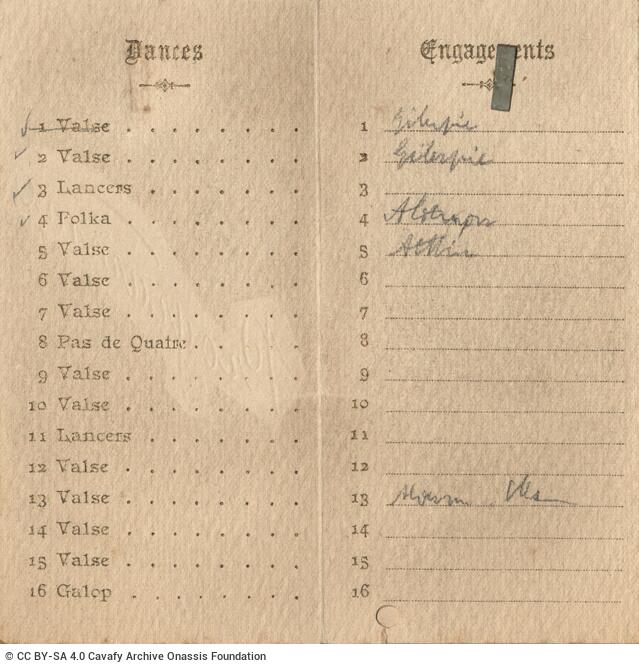 Dances
1 Valse
2 Valse
3 Lancers
4 Polka
5 Valse
6 Valse
7 Valse
8 Pas de Quatre
9 Valse
10 Valse
11 Lancers
12 Valse
13 Valse
14 Valse
15 Valse
16 Galop
Engagements
1
2
3
4
5
6
7
8
9
10
11
12
13
14
15
16
© CC BY-SA 4.0 Cavafy Archive Onassis Foundation